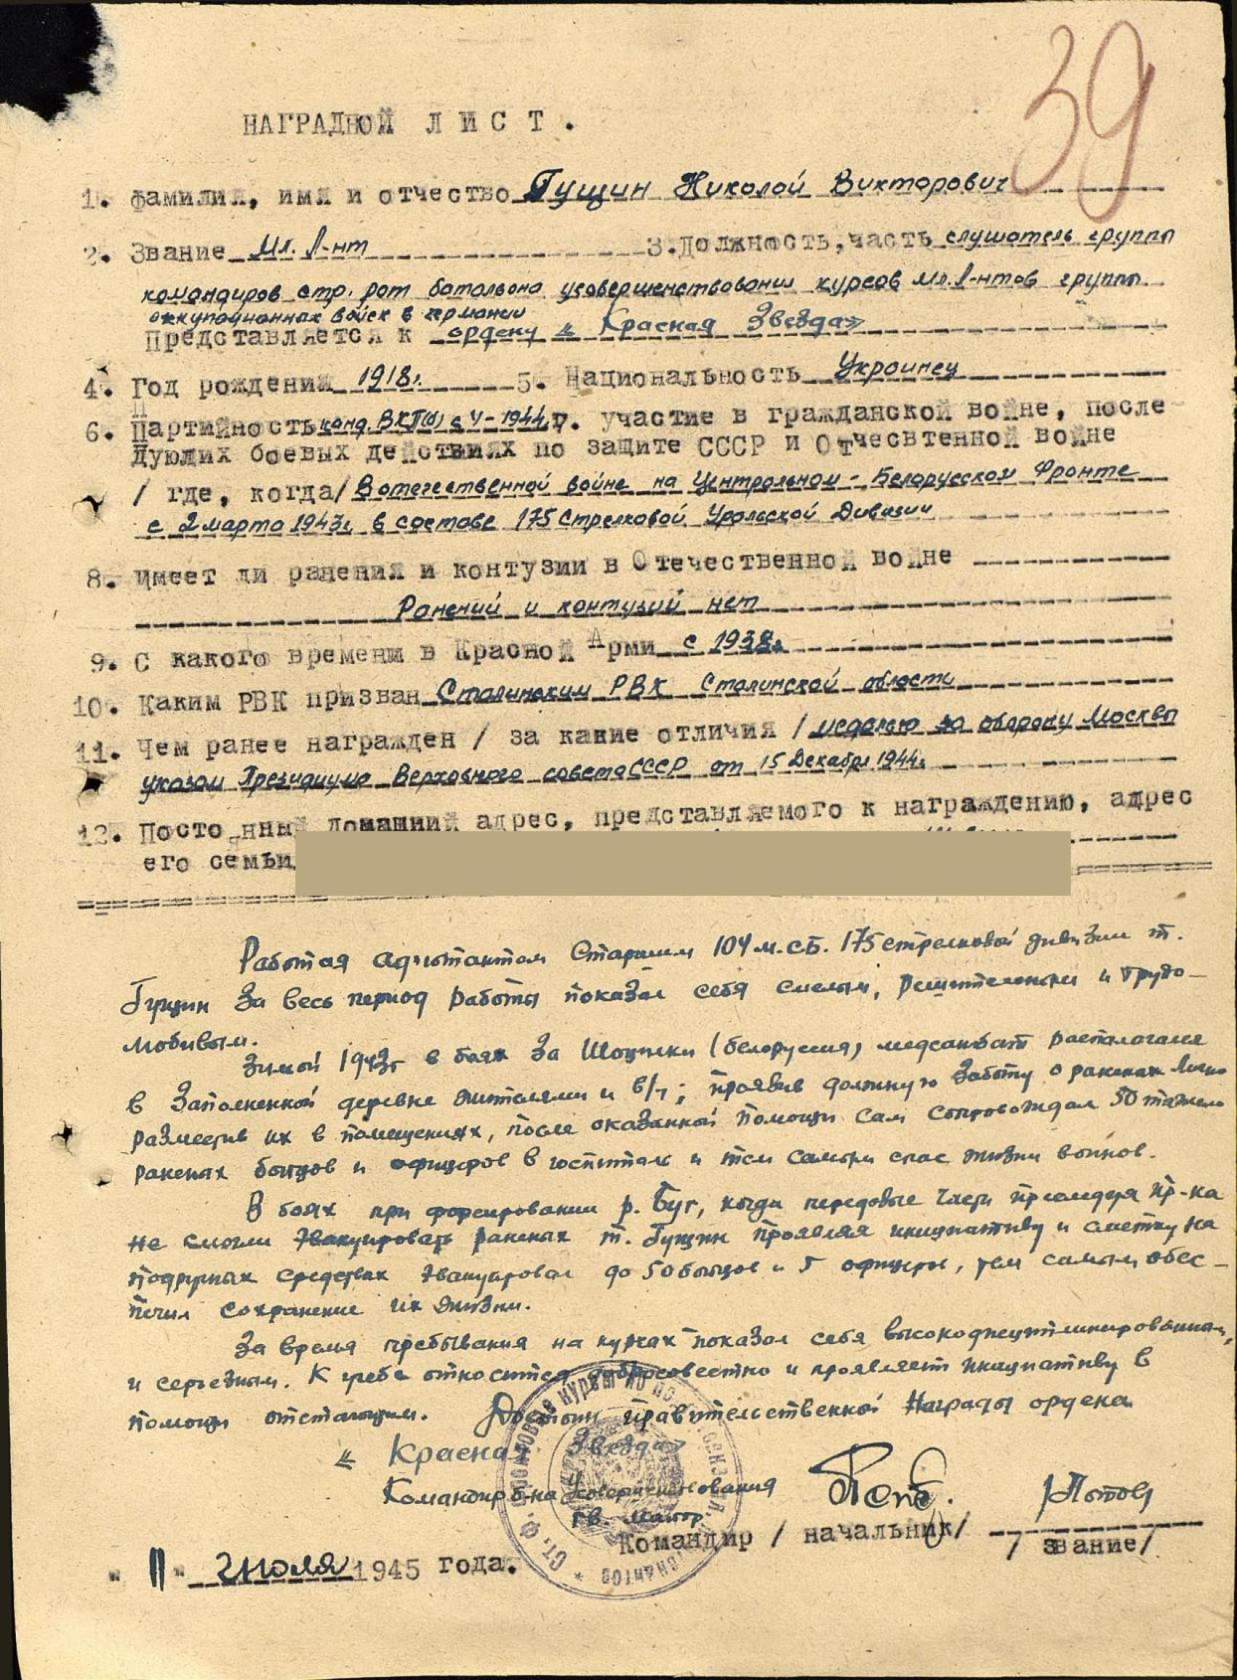 39
НАГРАДНОЙ ЛИСТ.
1. фамилия, имя и отчество Гущин Николай Викторович
2. Звание Мл. Л-нт 3. Должность, часть слушатель группы
командиров стр. рот батальона усовершенствования курсов мл. Л-нтов группы
оккупационных войск в германии
Представляется к ордену « Красная Звезда»
4. Год рождения 1918г. 5. Национальность Украинец
6. Партийность канд. ВКП(б) с V-1944 г. участие в гражданской войне, после
дующих боевых действиях по защите СССР и Отчесвтенной войне
/ где, когда/ В отечественной войне на Центральном - Белорусском Фронте
с 2 марта 1943г. в составе 175 Стрелковой Уральской Дивизии
8. имеет ли ранения и контузии в Отечественной войне
Ранений и контузий нет
9. С какого времени в Красной Арми с 1938г.
10. Каким РВК призван Сталинским РВК Сталинской области
11. Чем ранее награжден / за какие отличия / медалью за оборону Москвы
указом Президиума Верховного совета СССР от 15 Декабря 1944г.
12. Постоянный домашний адрес, представляемого к награждению, адрес
его семьи
Работая адъютантом Старшим 104 м.с.б. 175 стрелковой дивизии т.
Гущин за весь период работы показал себя смелым, решительным и трудо-
любивым.
Зимой 1943г в боях за Шоцилки (белоруссия) медсанбат распалагался
в заполненной деревне жителями и в/ч; проявив должную заботу о раненых лично
разместив их в помещениях, после оказанной помощи сам сопровождал 50 тяжело
раненых бойцов и офицеров в госпиталь и тем самым спас жизни воинов.
В боях при форсировании р. Буг, когда передовые части преследуя пр-ка
не смогли эвакуировать раненых т. Гущин проявляя инициативу и сметку на
подручных средствах эвакуировал до 50 бойцов и 5 офицеров, тем самым обес-
печил сохранение их жизни.
За время пребывания на курсах показал себя высокодисциплинированным,
и серьезным. К учебе относится добросовестно и проявляет инициативу в
помощи отстающим. Достоин правительственной Награды ордена
« Красная Звезда»
Командир б-на Усовершенствования
гв. майор /Попов/
Командир / начальник/ / звание/
" 11 " Июля 1945 года.